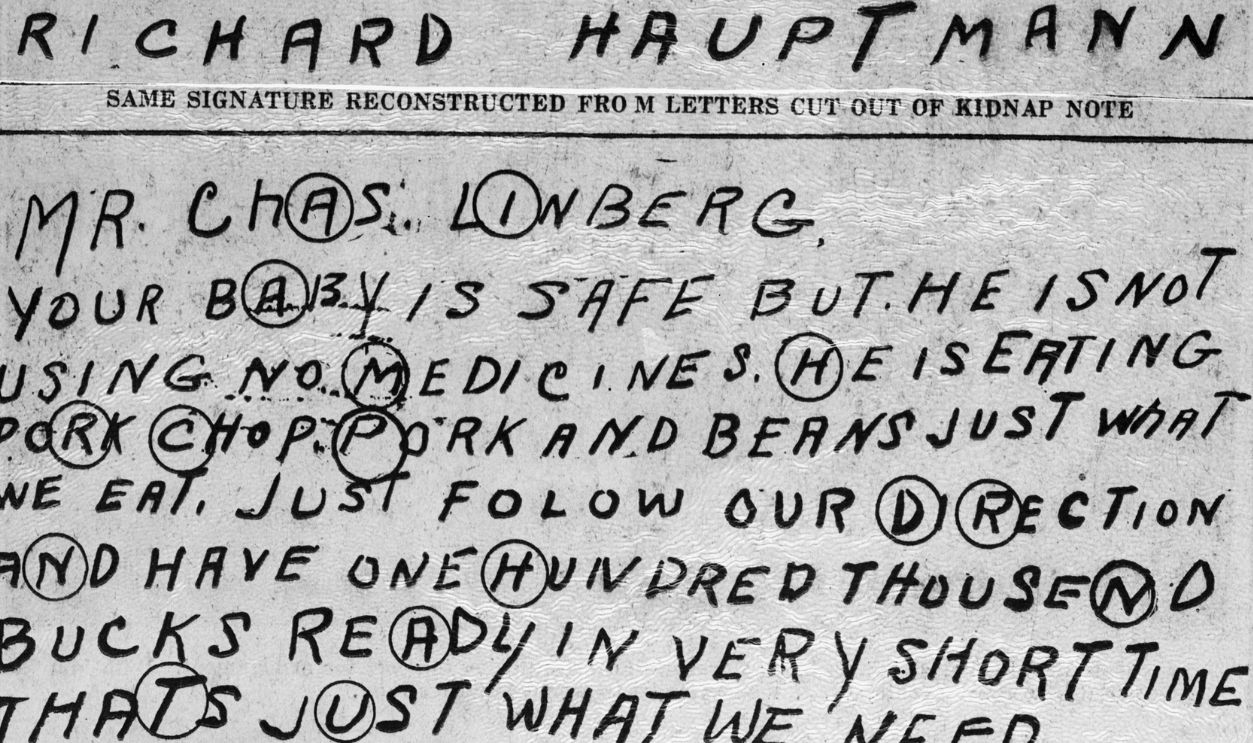 RICHARD HAUPTMANN
SAME SIGNATURE RECONSTRUCTED FROM LETTERS CUT OUT OF KIDNAP NOTE
MR. ChAS. LINBERG,
YOUR BABY IS SAFE BUT. HE IS NOT
USING NO MEDICINES. HE IS EATING
PORK CHOP. PORK AND BEANS JUST WhAT
WE EAT. JUST FOLOW OUR DIRECTION
AND HAVE ONE HUNDRED THOUSEND
BUCKS READY IN VERY SHORT TIME
THATS JUST WHAT WE NEED